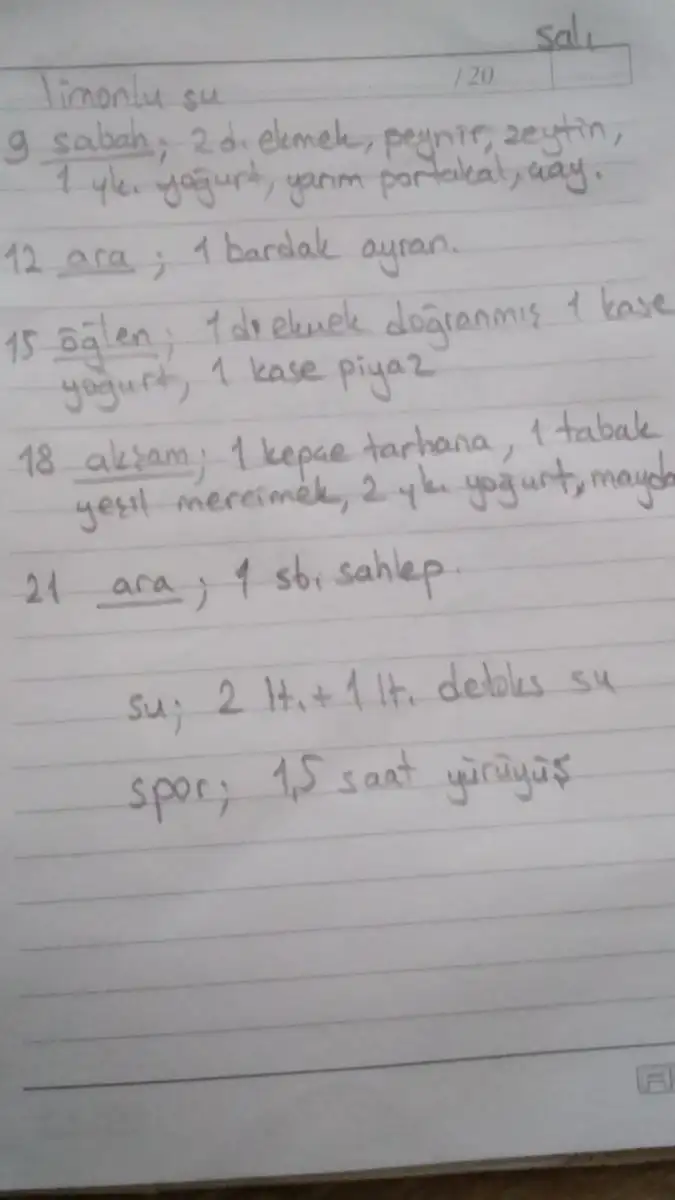 salı
/20
limonlu su
9 sabah; 2 d. ekmek, peynir, zeytin,
1 yk. yoğurt, yarım portakal, çay.
12 ara; 1 bardak ayran.
15 öğlen; 1 d. ekmek doğranmış 1 kase
yoğurt, 1 kase piyaz
18 akşam; 1 kepçe tarhana, 1 tabak
yeşil mercimek, 2 yk. yoğurt, maydo
21 ara; 1 sb. sahlep.
su; 2 lt. + 1 lt. detoks su
spor; 1,5 saat yürüyüş